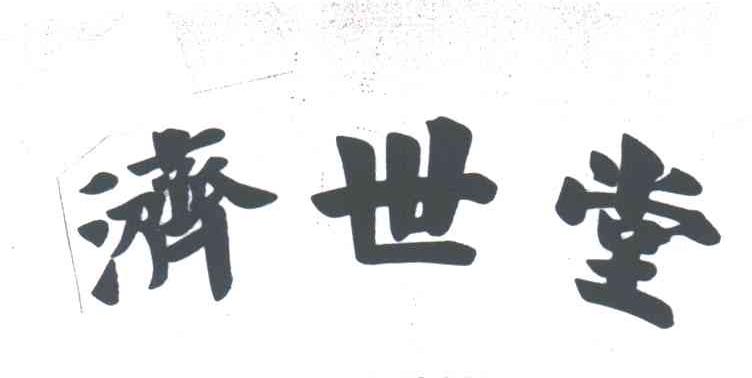 濟世堂